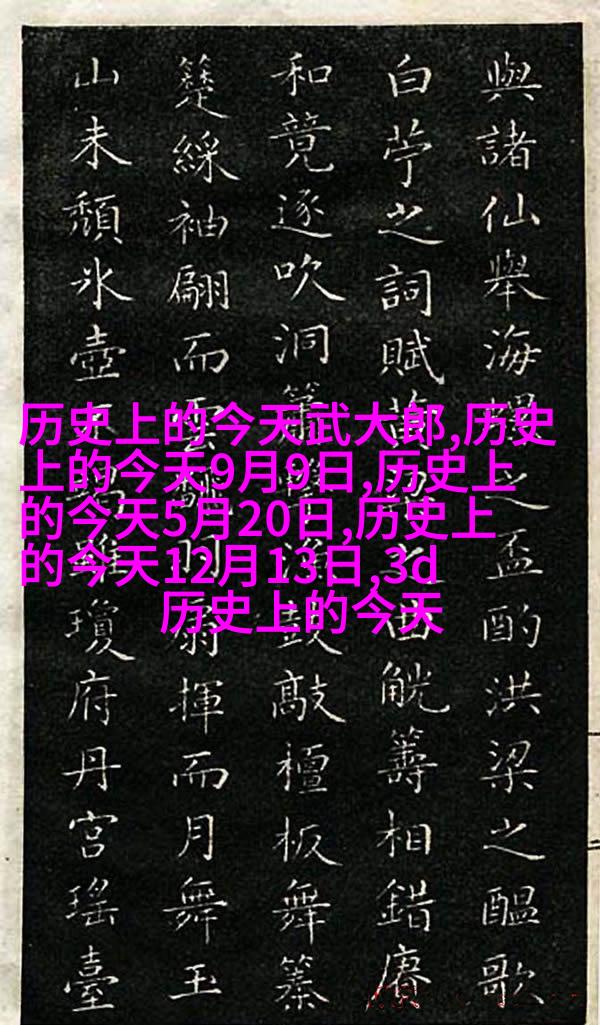 與諸仙舉海之盃酌洪梁之醞歌
白苧之詞賦之曲觥籌相錯賡
和竟逐吹洞簫鼓敲檀板舞
楚綵袖翩而雲翻羽扇揮而月舞玉
山未頹冰壺雖瓊府丹宮瑤臺
历史上的今天武大郎,历史
上的今天9月9日,历史上
的今天5月20日,历史上
的今天12月13日,3d
历史上的今天